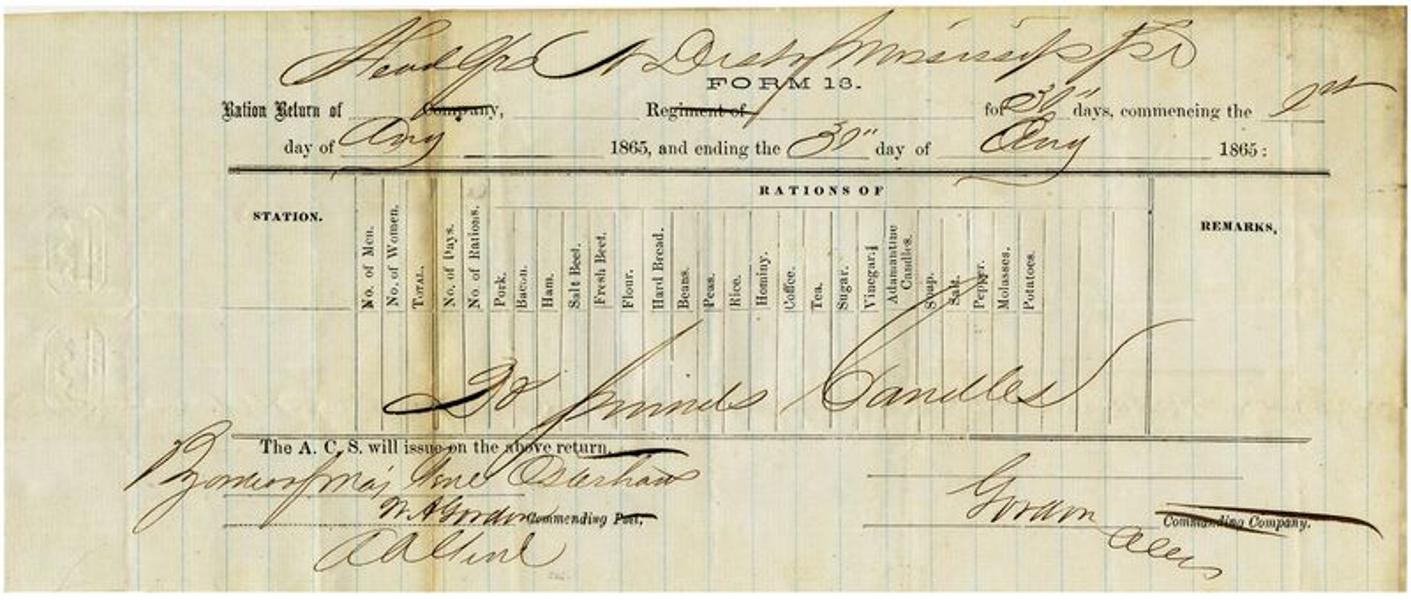 Head Qrs N Dist of Mississippi
FORM 13.
Ration Return of Company, Regiment of for 30" days, commencing the 1st
day of Aug 1865, and ending the 30" day of Aug 1865:
RATIONS OF
STATION. No. of Men. No. of Women. TOTAL. No. of Days. No. of Rations. Pork. Bacon. Ham. Salt Beef. Fresh Beef. Flour. Hard Bread. Beans. Peas. Rice. Hominy. Coffee. Tea. Sugar. Vinegar. Adamantine Candles. Soap. Salt. Pepper. Molasses. Potatoes. REMARKS,
pounds Candles
The A. C. S. will issue on the above return.
By order of Maj Genl Osterhaus
W A Gordon Commending Post, Gordon Commanding Company.
A A Genl